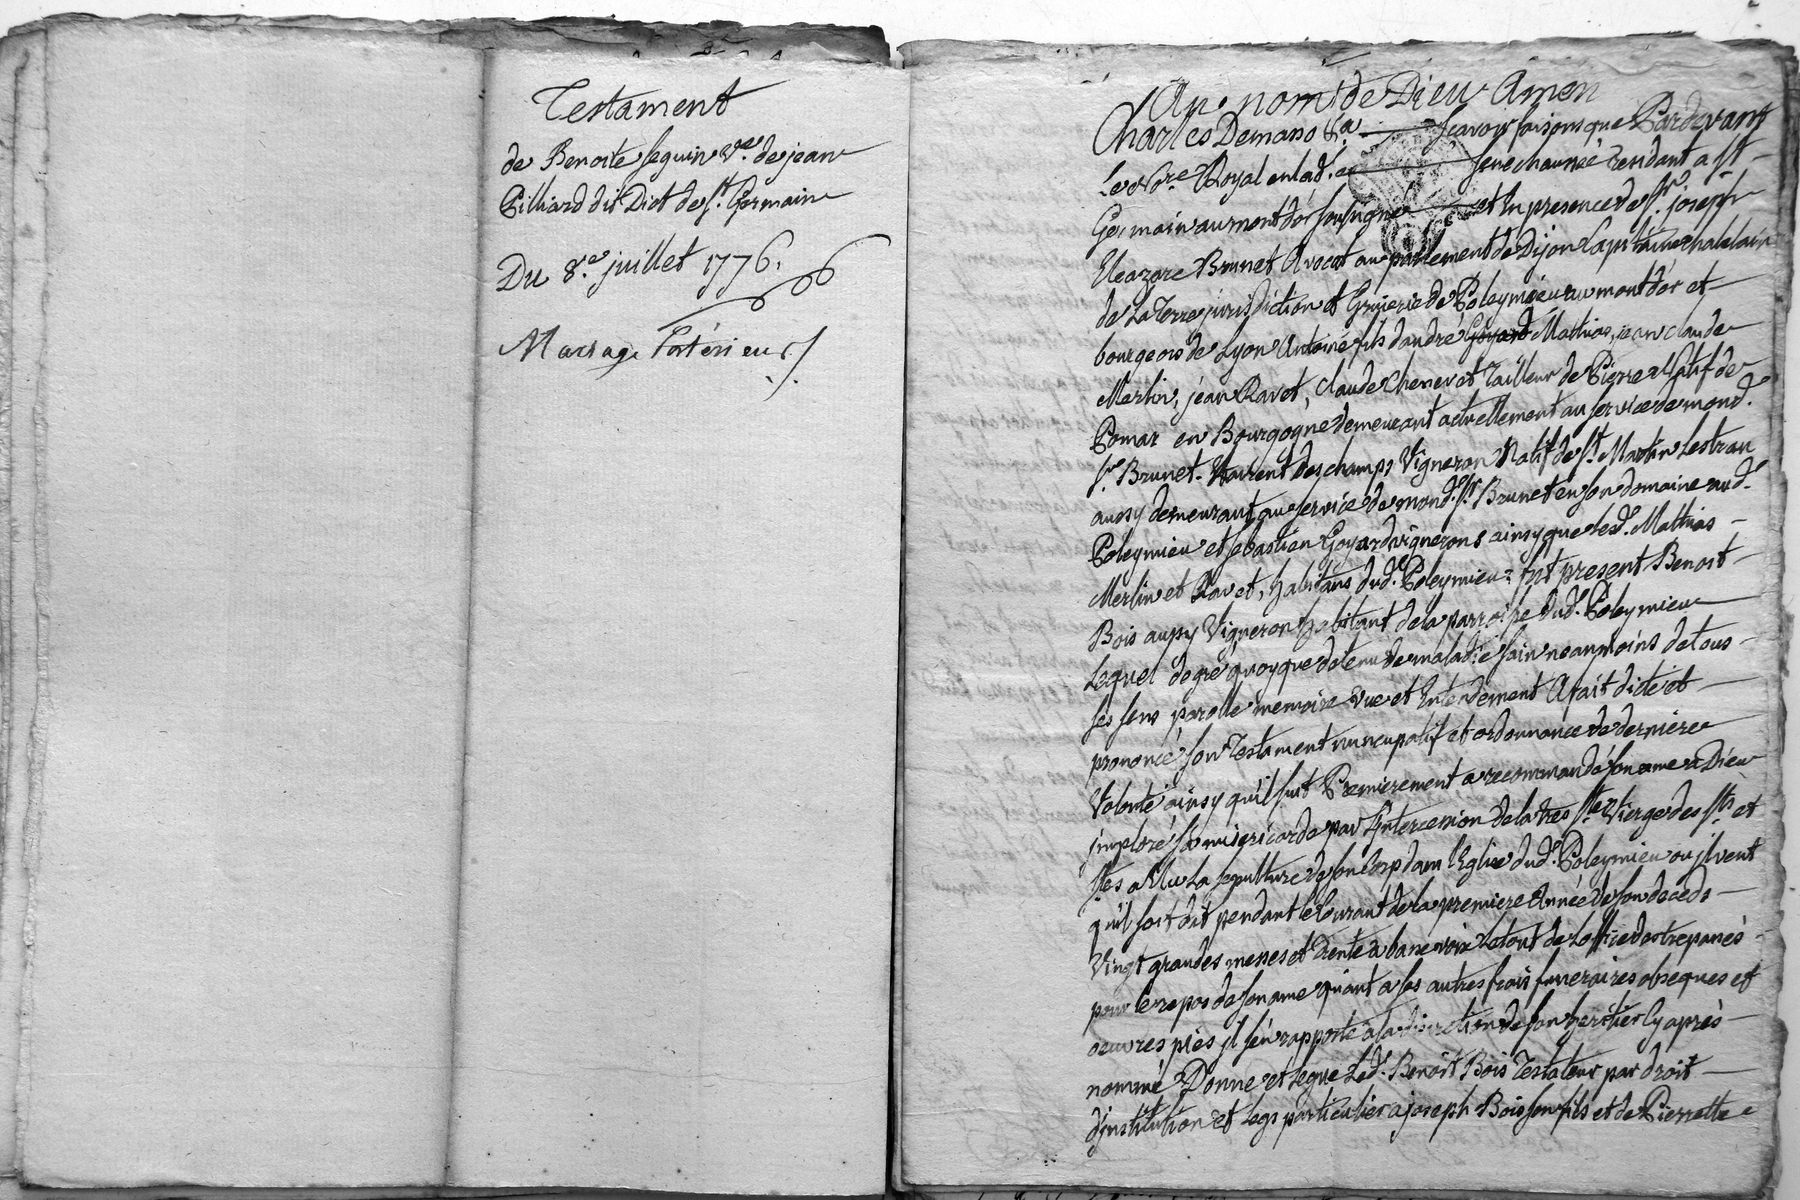 Testament
de Benoite Seguin Ve. de jean
Pilliard dit Diot de St. Germain
Du 8.e juillet 1776.
Mariage Postérieur
Au nom de Dieu Amen
Charles Demasso &a. Scavoir faisons que Pardevant
Le No.re Royal en lad. Senechaussée residant a St
Germain au mont d'or soussigné et En presence de Sr. joseph
Eleazare Brunet Avocat au parlement de Dijon Capitaine chatelain
de La Terre jurisdiction et Gruyerie de Poleymieu au mont d'or et
bourgeois de Lyon Antoine fils dandré Goyard Mathias, jean claude
Merlin, jean Ravet, Claude Chenevet Tailleur de Pierre Natif de
Pomar en Bourgogne demeurant actuellement au service de mond.
Sr. Brunet. Laurent deschamps Vigneron Natif de St. Martin Lestrau
aussy demeurant au service de mond. Sr. Brunet en son domaine aud.
Poleymieu et sebastien Goyard vignerons ainsy que lesd. Mathias
Merlin et Ravet, habitans dud. Poleymieu: fut present Benoit
Bois aussy Vigneron habitant de la parroisse dud. Poleymieu
Lequel de gré quoyque detenu de maladie sain neanmoins de tous
ses sens parolle memoire vue et Entendement A fait dicté et
prononcé son Testament nuncupatif et ordonnance de derniere
Volonté ainsy quil suit Premierement a recommandé son ame a Dieu
imploré sa misericorde par L'intercession de la tres Ste Vierge des Sts et
Stes a Elu La sepulture de son Corp dans l'Eglise dud. Poleymieu ou jl veut
quil soit dit pendant le Courant de la premiere Année de son deceds
Vingt grandes messes et Trente a basse voix Le tout de Loffice des trepassés
pour le repos de son ame quant a ses autres frais funeraires obseques et
oeuvres pies jl s'en rapporte a la discretion de son heritier Cy après
nommé Donne et Legue Led. Benoit Bois Testateur par droit
d'institution et Legs particulier a joseph Bois son fils et de Pierrette